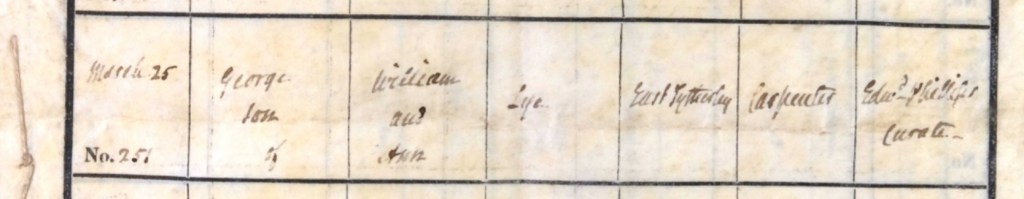 March 25
No. 251
George
son
of
William
and
Ann
Lye
East Tytherley
Carpenter
Edwd. Phillips
Curate